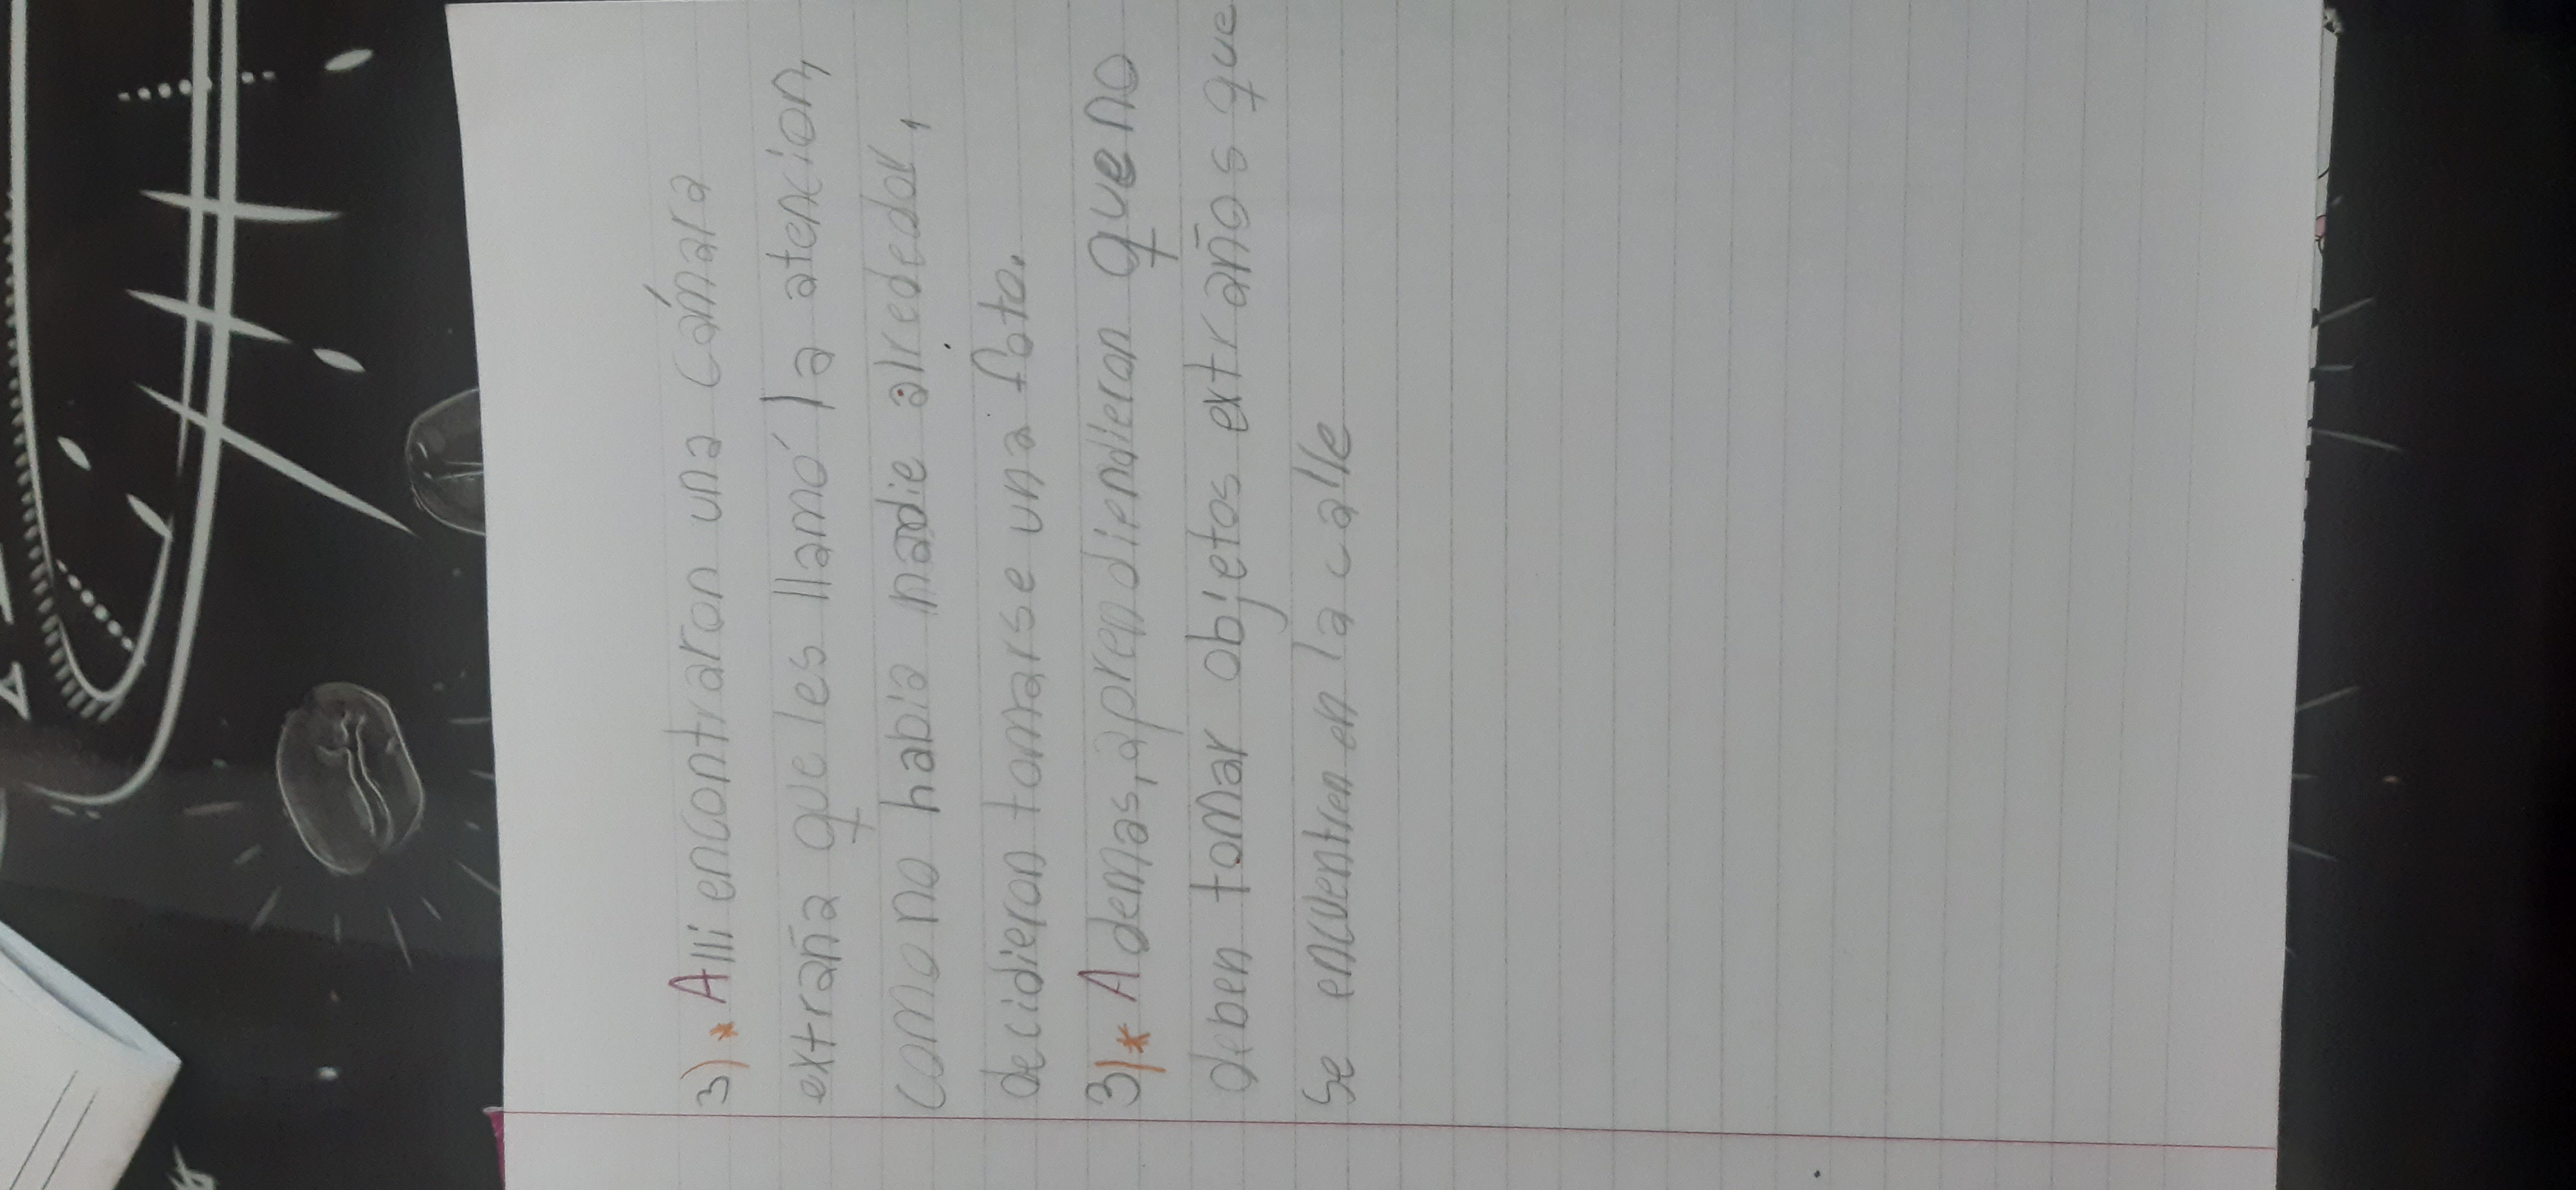 3) * Alli encontraron una cámara
extraña que les llamó la atencion,
como no había nadie alrededor,
decidieron tomarse una foto.
3) * Ademas, aprendiendieron que no
deben tomar objetos extraños que
se encuentren en la calle